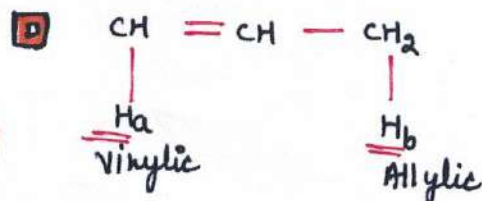 D CH = CH — CH₂
Ha Hb
Vinylic Allylic